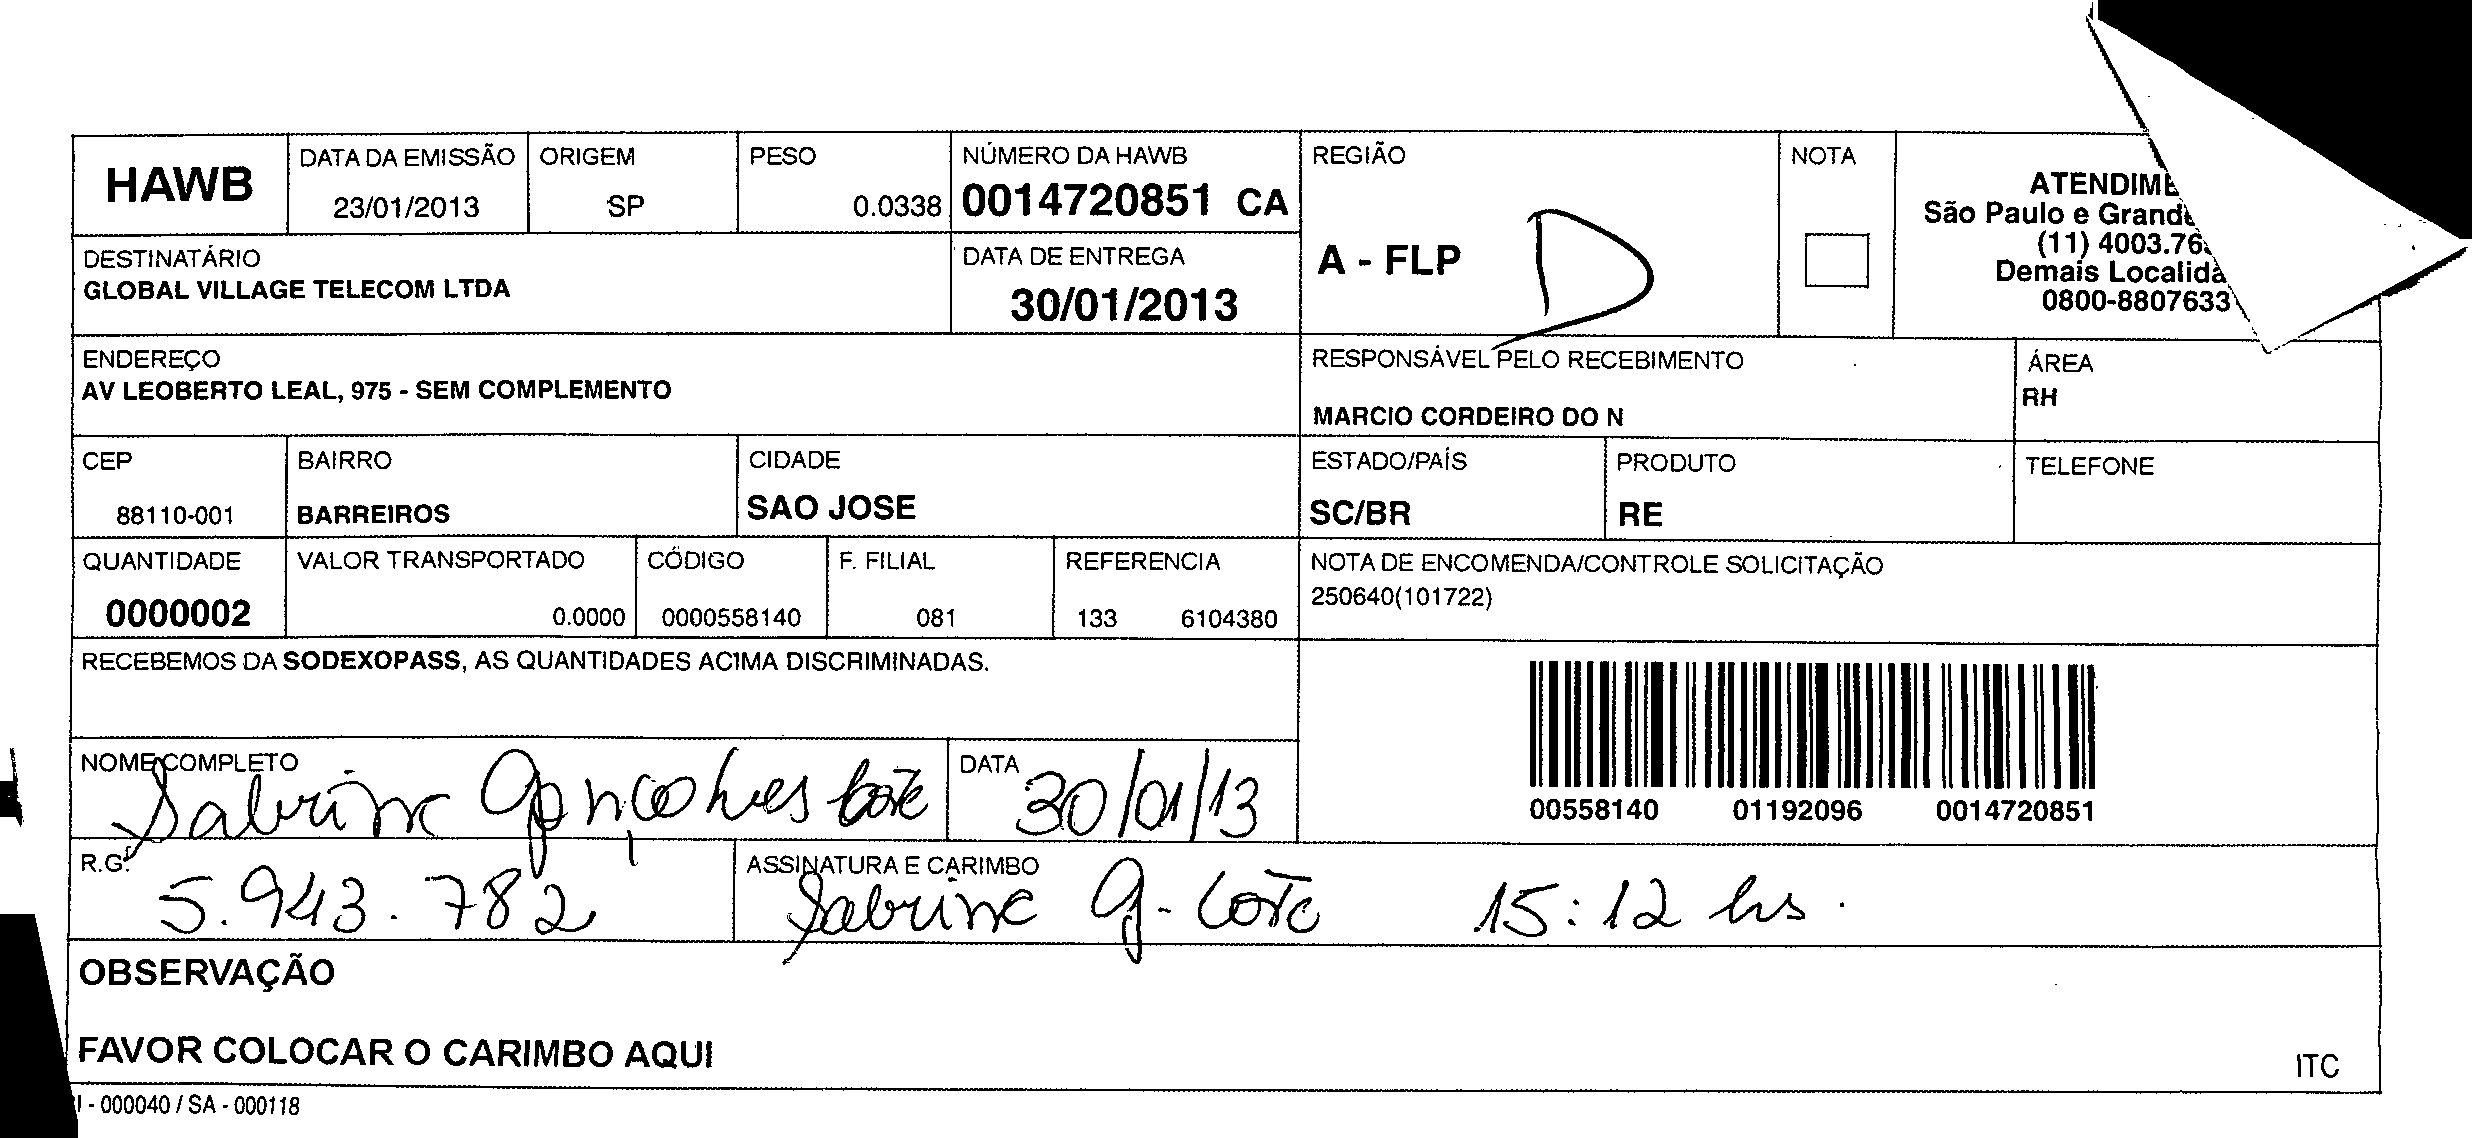 HAWB
DATA DA EMISSÃO
23/01/2013
ORIGEM
SP
PESO
0.0338
NÚMERO DA HAWB
0014720851 CA
REGIÃO
A - FLP
D
NOTA
ATENDIME
São Paulo e Grande
(11) 4003.76
Demais Localida
0800-8807633
DESTINATÁRIO
GLOBAL VILLAGE TELECOM LTDA
DATA DE ENTREGA
30/01/2013
ENDEREÇO
AV LEOBERTO LEAL, 975 - SEM COMPLEMENTO
RESPONSÁVEL PELO RECEBIMENTO
MARCIO CORDEIRO DO N
ÁREA
RH
CEP
88110-001
BAIRRO
BARREIROS
CIDADE
SAO JOSE
ESTADO/PAÍS
SC/BR
PRODUTO
RE
TELEFONE
QUANTIDADE
0000002
VALOR TRANSPORTADO
0.0000
CÓDIGO
0000558140
F. FILIAL
081
REFERENCIA
133 6104380
NOTA DE ENCOMENDA/CONTROLE SOLICITAÇÃO
250640(101722)
RECEBEMOS DA SODEXOPASS, AS QUANTIDADES ACIMA DISCRIMINADAS.
00558140 01192096 0014720851
NOME COMPLETO
Sabrine Gonçalves
DATA
30/01/13
R.G.
5.943.782
ASSINATURA E CARIMBO
Sabrine G. 15:12 hs.
OBSERVAÇÃO
FAVOR COLOCAR O CARIMBO AQUI
ITC
- 000040 / SA - 000118